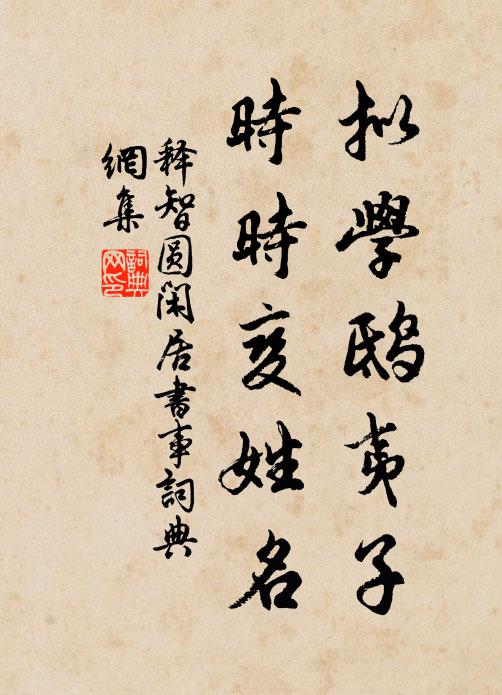 拟學鸱夷子
時時变姓名
释智圆闲居書事詞典
網集
詞典
网印